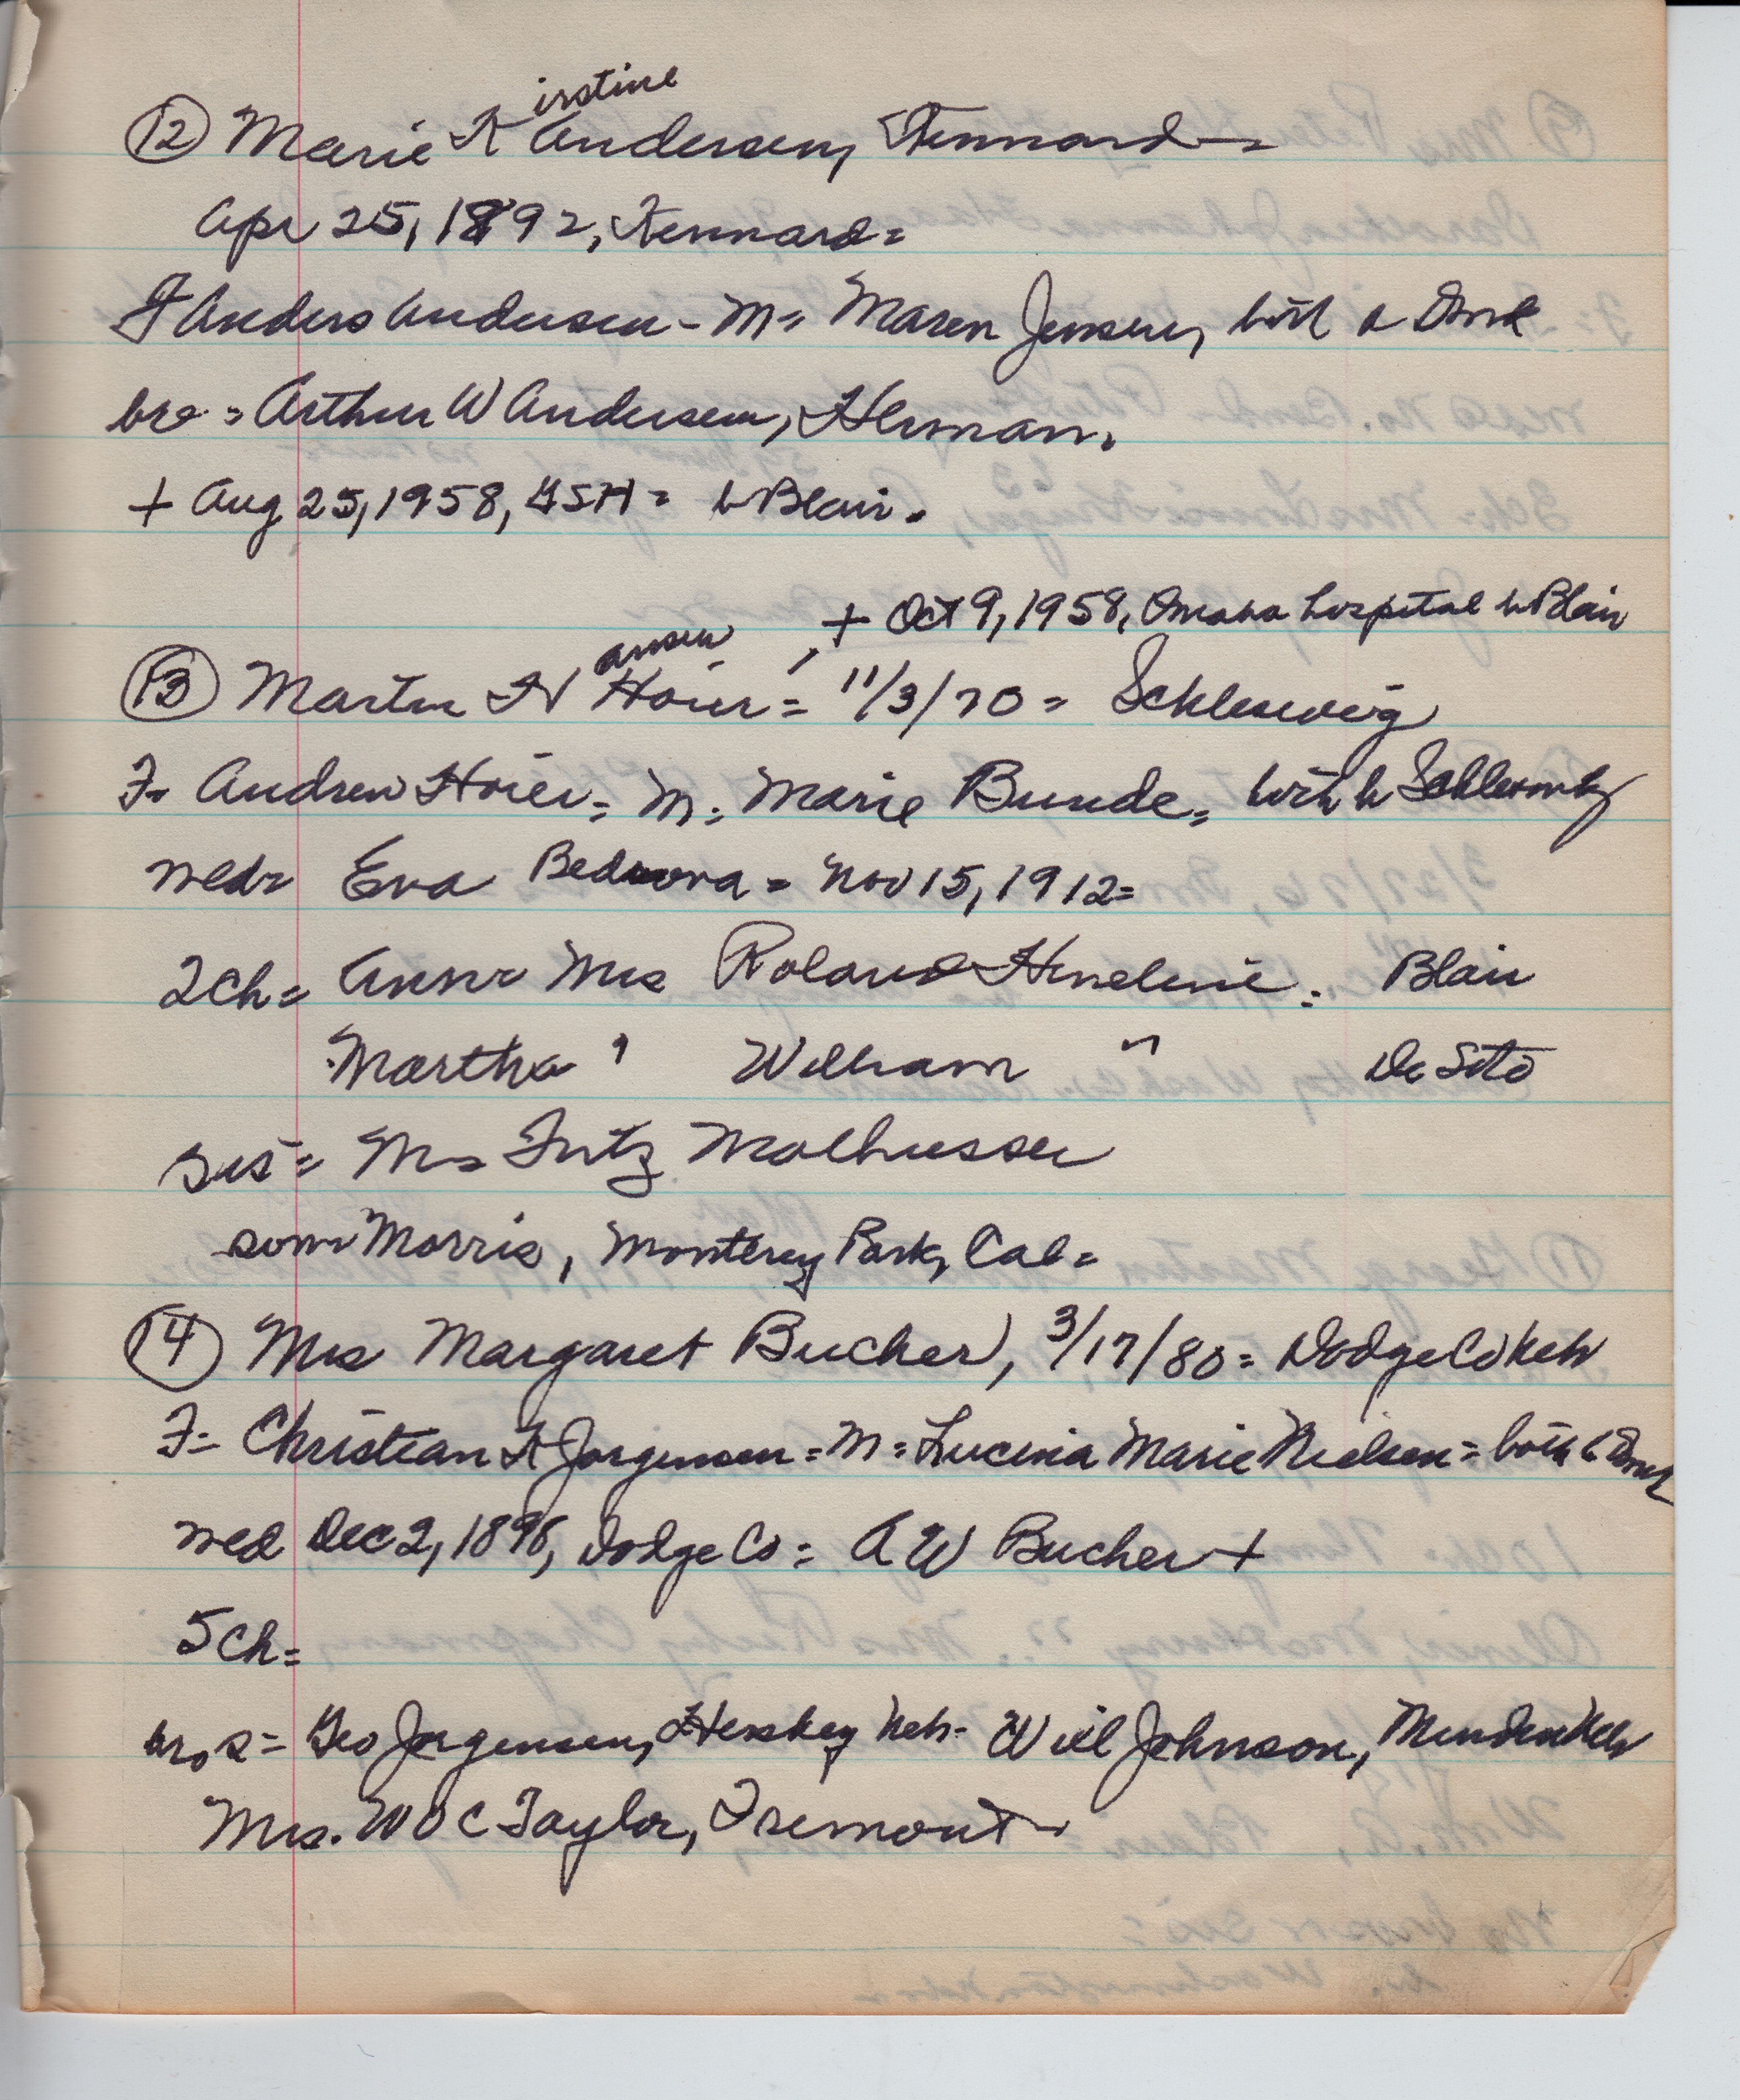 irstine
12 Marie K Andersen, Kennard =
Apr 25, 1892, Kennard =
F Anders Andersen - M = Maren Jensen, both b Dmk
bro = Arthur W Andersen, Herman.
+ Aug 25, 1958, GSH = b Blair.
+ Oct 9, 1958, Omaha hospital b Blair
ansen
13 Martin H Hoier = 11/3/70 = Schleswig
F = Andrew Hoier = M = Marie Bunde = both b Schleswig
wed = Eva = Nov 15, 1912 =
2 ch = Anna Mrs Roland Hineline = Blair
Martha " William " De Soto
sis = Mrs Fritz
son = Morris, Monterey Park, Cal =
14 Mrs Margaret Bucher, 3/17/80 = Dodge Co Neb
F = Christian K Jorgensen = M = Lucinia Marie Nielsen = both b Dmk
wed Dec 2, 1896, Dodge Co = A W Bucher +
5 ch =
bros = Geo Jorgensen, Hershey Neb - Will Johnson, Minden Neb
Mrs. W O C Taylor, Fremont -